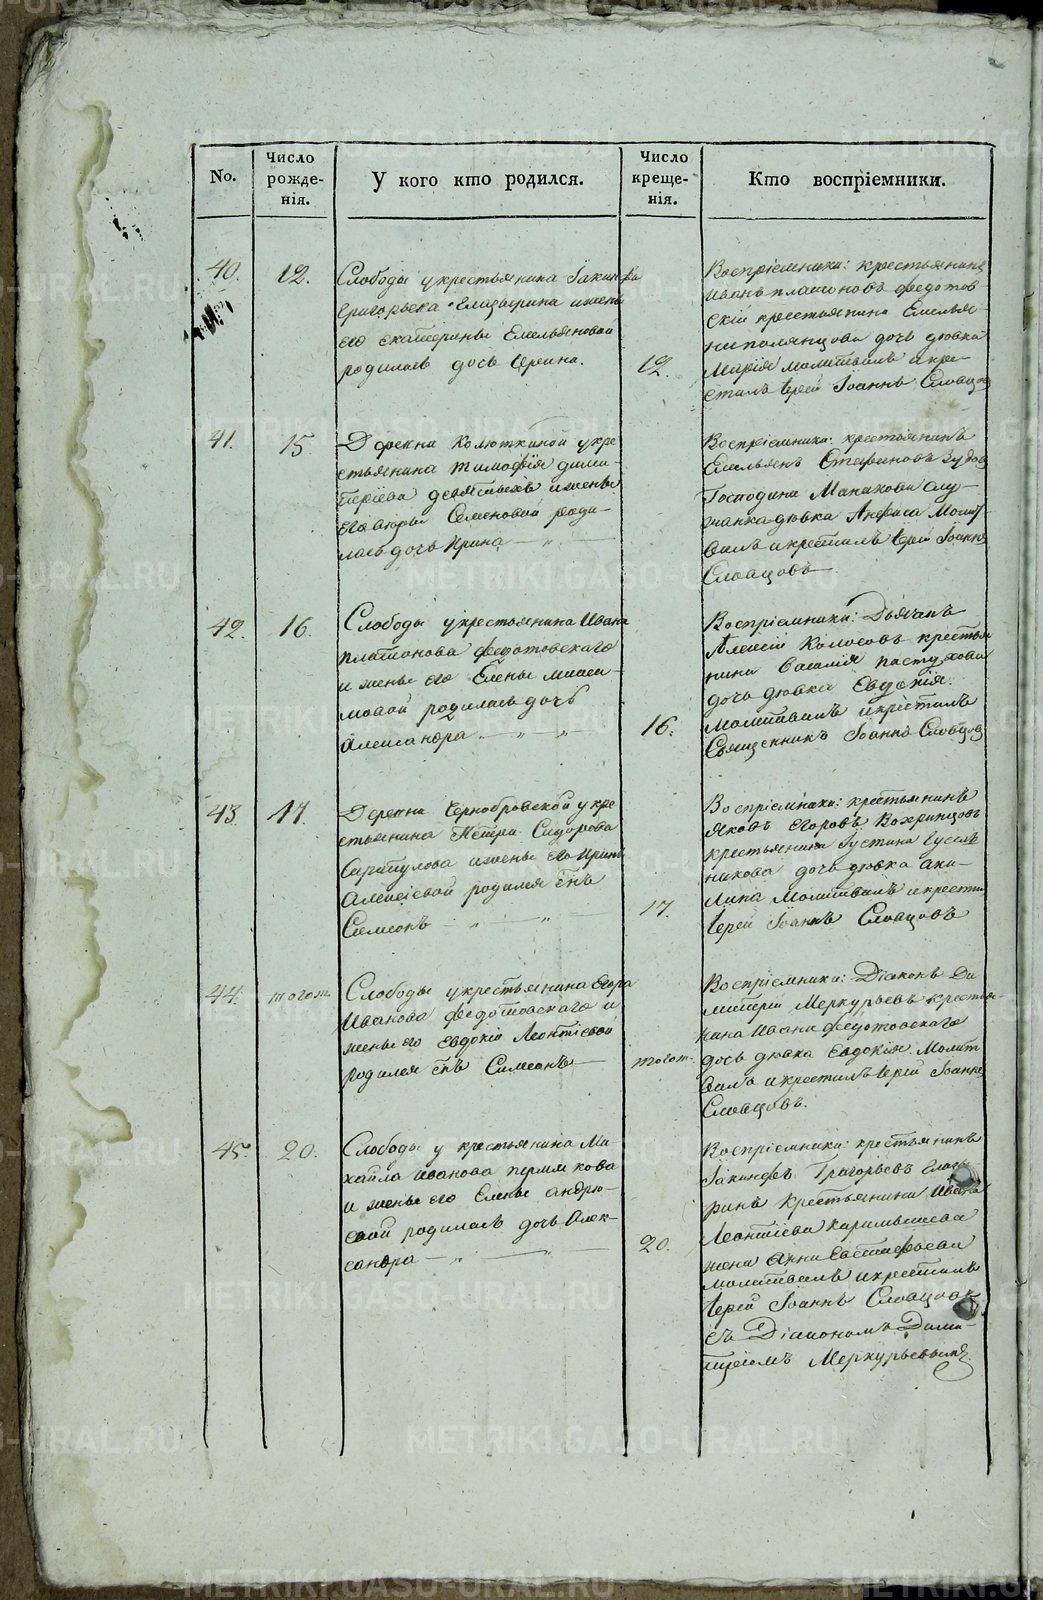 No.
Число рожде-нія.
У кого кто родился.
Число креще-нія.
Кто воспріемники.
40.
12.
Слободы у крестьянина Іакинфа
Григорьева Елизарина и жены
его Екатерины Емельяновой
родилась дочь Ирина.
12.
Воспріемники: крестьянинъ
Иванъ Платоновъ Федотов
скій крестьянина Емельяна
дочь дѣвка
Марія молитвилъ и кре-
стилъ Іерей Іоаннъ Словцовъ
41.
15.
Деревни Колюткиной у кре
стьянина Тимофея Дими-
тріева Девятыхъ и жены
его Семеновой роди-
лась дочь Ирина
Воспріемники: крестьянинъ
Емельянъ Стефановъ Зудовъ
Господина слу-
жанка дѣвка Анфиса Молит
вилъ и крестилъ Іерей Іоаннъ
Словцовъ
42.
16.
Слободы у крестьянина Ивана
Платонова Федотовскаго
и жены его Елены Макси-
мовой родилась дочь
Александра
16.
Воспріемники: Дьячекъ
Алексій Колосовъ крестья
нина Василія Пастухова
дочь дѣвка Евдокія.
Молитвилъ и крестилъ
Священникъ Іоаннъ Словцовъ
43.
17.
Деревни Чернобровской у кре
стьянина Петра Сидорова
Сарапулова и жены его Ирины
Алексіевой родился сынъ
Симеонъ
17.
Воспріемники: крестьянинъ
Яковъ Егоровъ Вохринцовъ
крестьянина Іустина Гусель
никова дочь дѣвка Аки-
лина Молитвилъ и крестилъ
Іерей Іоаннъ Словцовъ
44.
тогож.
Слободы у крестьянина Егора
Иванова Федотовскаго и
жены его Евдокіи Леонтіевой
родился сынъ Симеонъ
тогож.
Воспріемники: Діаконъ Ди
митрій Меркурьевъ крестья-
нина Ивана Федотовскаго
дочь дѣвка Евдокія Молит
вилъ и крестилъ Іерей Іоаннъ
Словцовъ.
45.
20.
Слободы у крестьянина Ми
хайла Иванова Пермикова
и жены его Елены Андре-
евой родилась дочь Алек-
сандра
20.
Воспріемники: крестьянинъ
Іакинфъ Григорьевъ Елиза
ринъ крестьянина Ивана
Леонтіева
жена Анна Евстафіева
молитвилъ и крестилъ
Іерей Іоаннъ Словцовъ
съ Діакономъ Дими-
тріемъ Меркурьевымъ.
METRIKI.GASO-URAL.RU